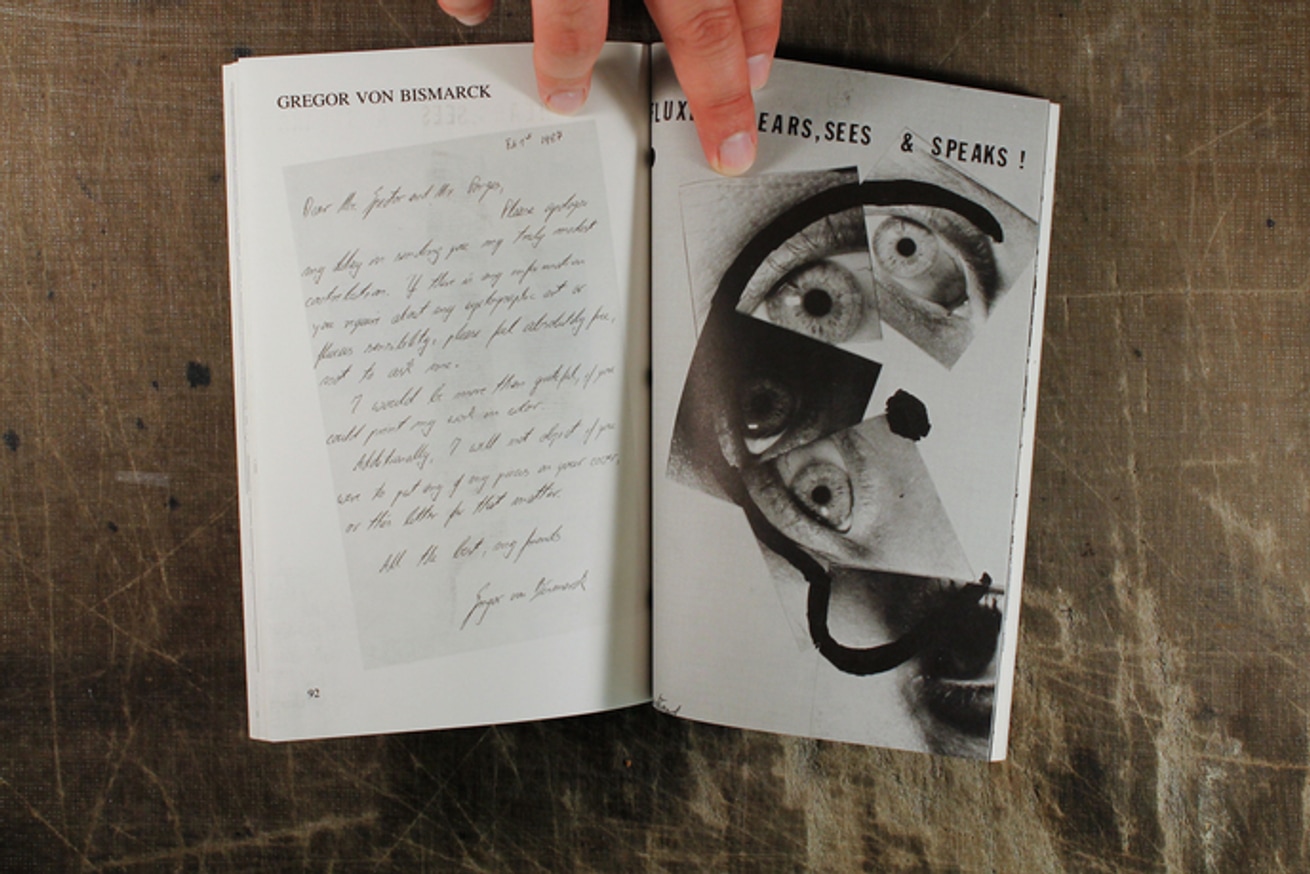 GREGOR VON BISMARCK
1987
Dear Mr. and Mr.
Please apologize
my delay on sending you my truly modest
contribution. If there is any information
you require about my art or
fluxus sensibility, please feel absolutely free,
not to ask me.
I would be more then grateful, if you
could print my work in color.
Additionally, I will not object if you
were to put any of my pieces on your cover,
or this letter for that matter.
All the best, my friends
Gregor von Bismarck
92
EARS, SEES & SPEAKS !